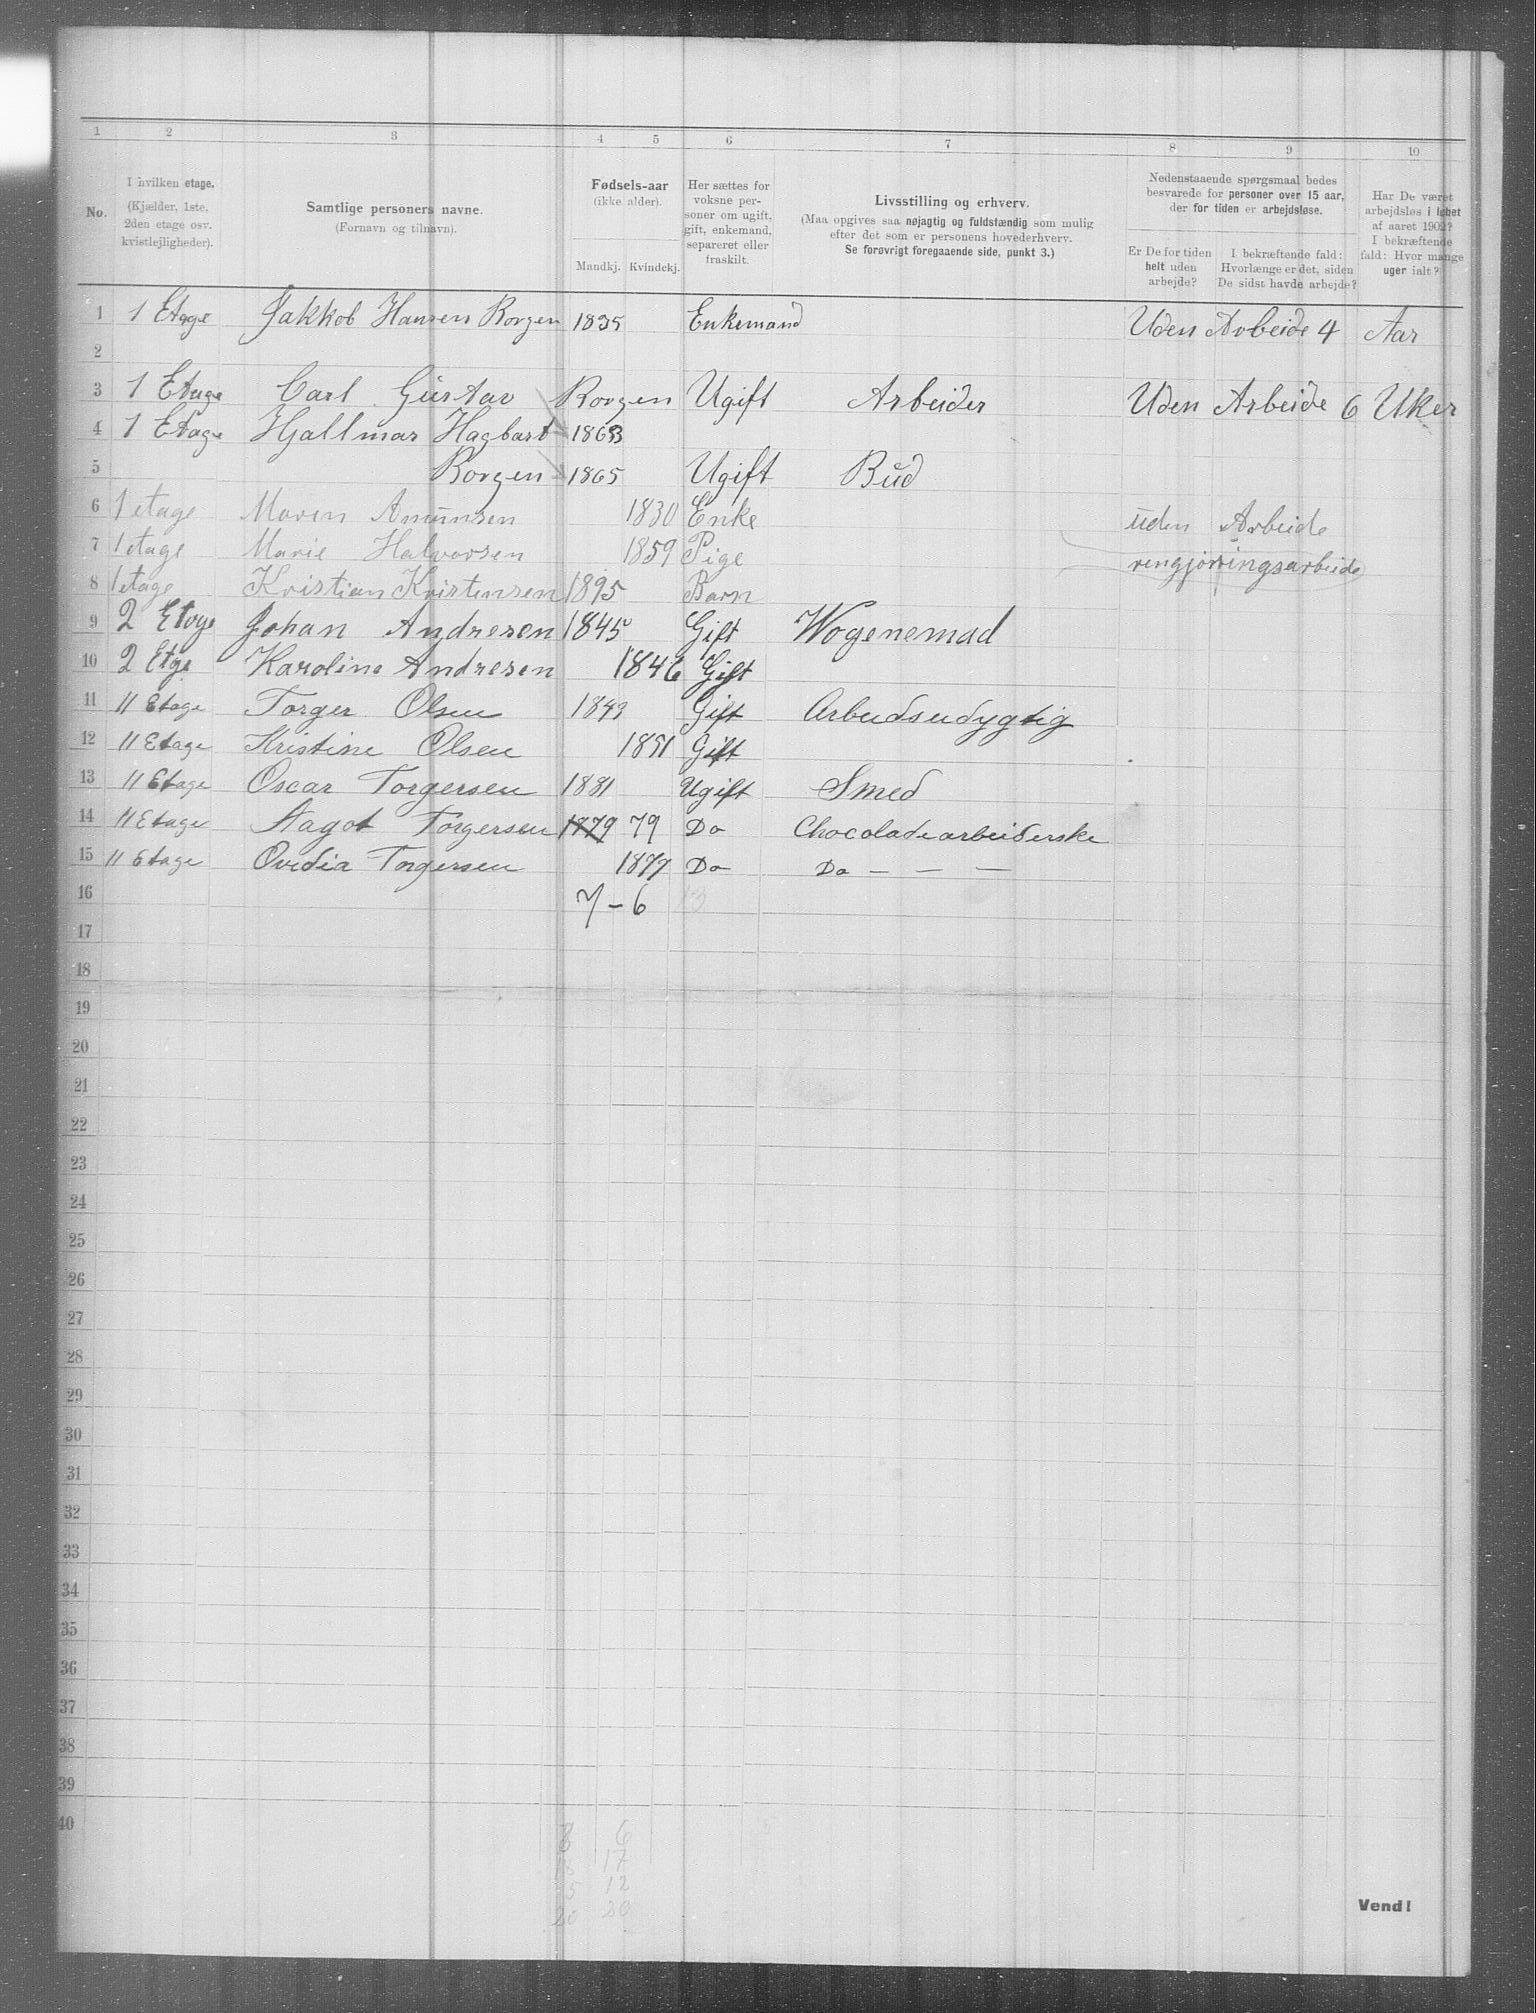 1 2 3 4 5 6 7 8 9 10
No.
I hvilken etage.
(Kjælder, 1ste,
2den etage osv.
kvistlejligheder).
Samtlige personers navne.
(Fornavn og tilnavn).
Fødsels-aar
(ikke alder).
Mandkj. Kvindekj.
Her sættes for
voksne per-
soner om ugift,
gift, enkemand,
separeret eller
fraskilt.
Livsstilling og erhverv.
(Maa opgives saa nøjagtig og fuldstændig som mulig
efter det som er personens hovederhverv.
Se forøvrigt foregaaende side, punkt 3.)
Nedenstaaende spørgsmaal bedes
besvarede for personer over 15 aar,
der for tiden er arbejdsløse.
Er De for tiden
helt uden
arbejde?
I bekræftende fald:
Hvorlænge er det, siden
De sidst havde arbejde?
Har De været
arbejdsløs i løbet
af aaret 1902?
I bekræftende
fald: Hvor mange
uger ialt?
1 1 Etage Jakkob Hansen Borgen 1835 Enkemand Uden Arbeide 4 Aar
2
3 1 Etage Carl Gustav Borgen Ugift Arbeider Uden Arbeide 6 Uker
4 1 Etage Hjallmar Hagbart 1863
5 Borgen 1865 Ugift Bud
6 1 etage Maren Amunsen 1830 Enke uden Arbeide
7 1 etage Marie Halvorsen 1859 Pige rengjøringsarbeide
8 1 etage Kristian Kristensen 1895 Barn
9 2 Etage Johan Andresen 1845 Gift Wogenemad
10 2 Etge Karoline Andresen 1846 Gift
11 11 Etage Torger Olsen 1843 Gift Arbeidsudygtig
12 11 Etage Kristine Olsen 1851 Gift
13 11 Etage Oscar Torgersen 1881 Ugift Smed
14 11 Etage Aagot Torgersen 1879 79 Do Chocoladearbeiderske
15 11 Etage Ovidia Torgersen 1877 Do Do — — —
16 7 – 6 13
17
18
19
20
21
22
23
24
25
26
27
28
29
30
31
32
33
34
35
36
37
38
39
40
8 6
18 17
15 12
20 20
Vend!